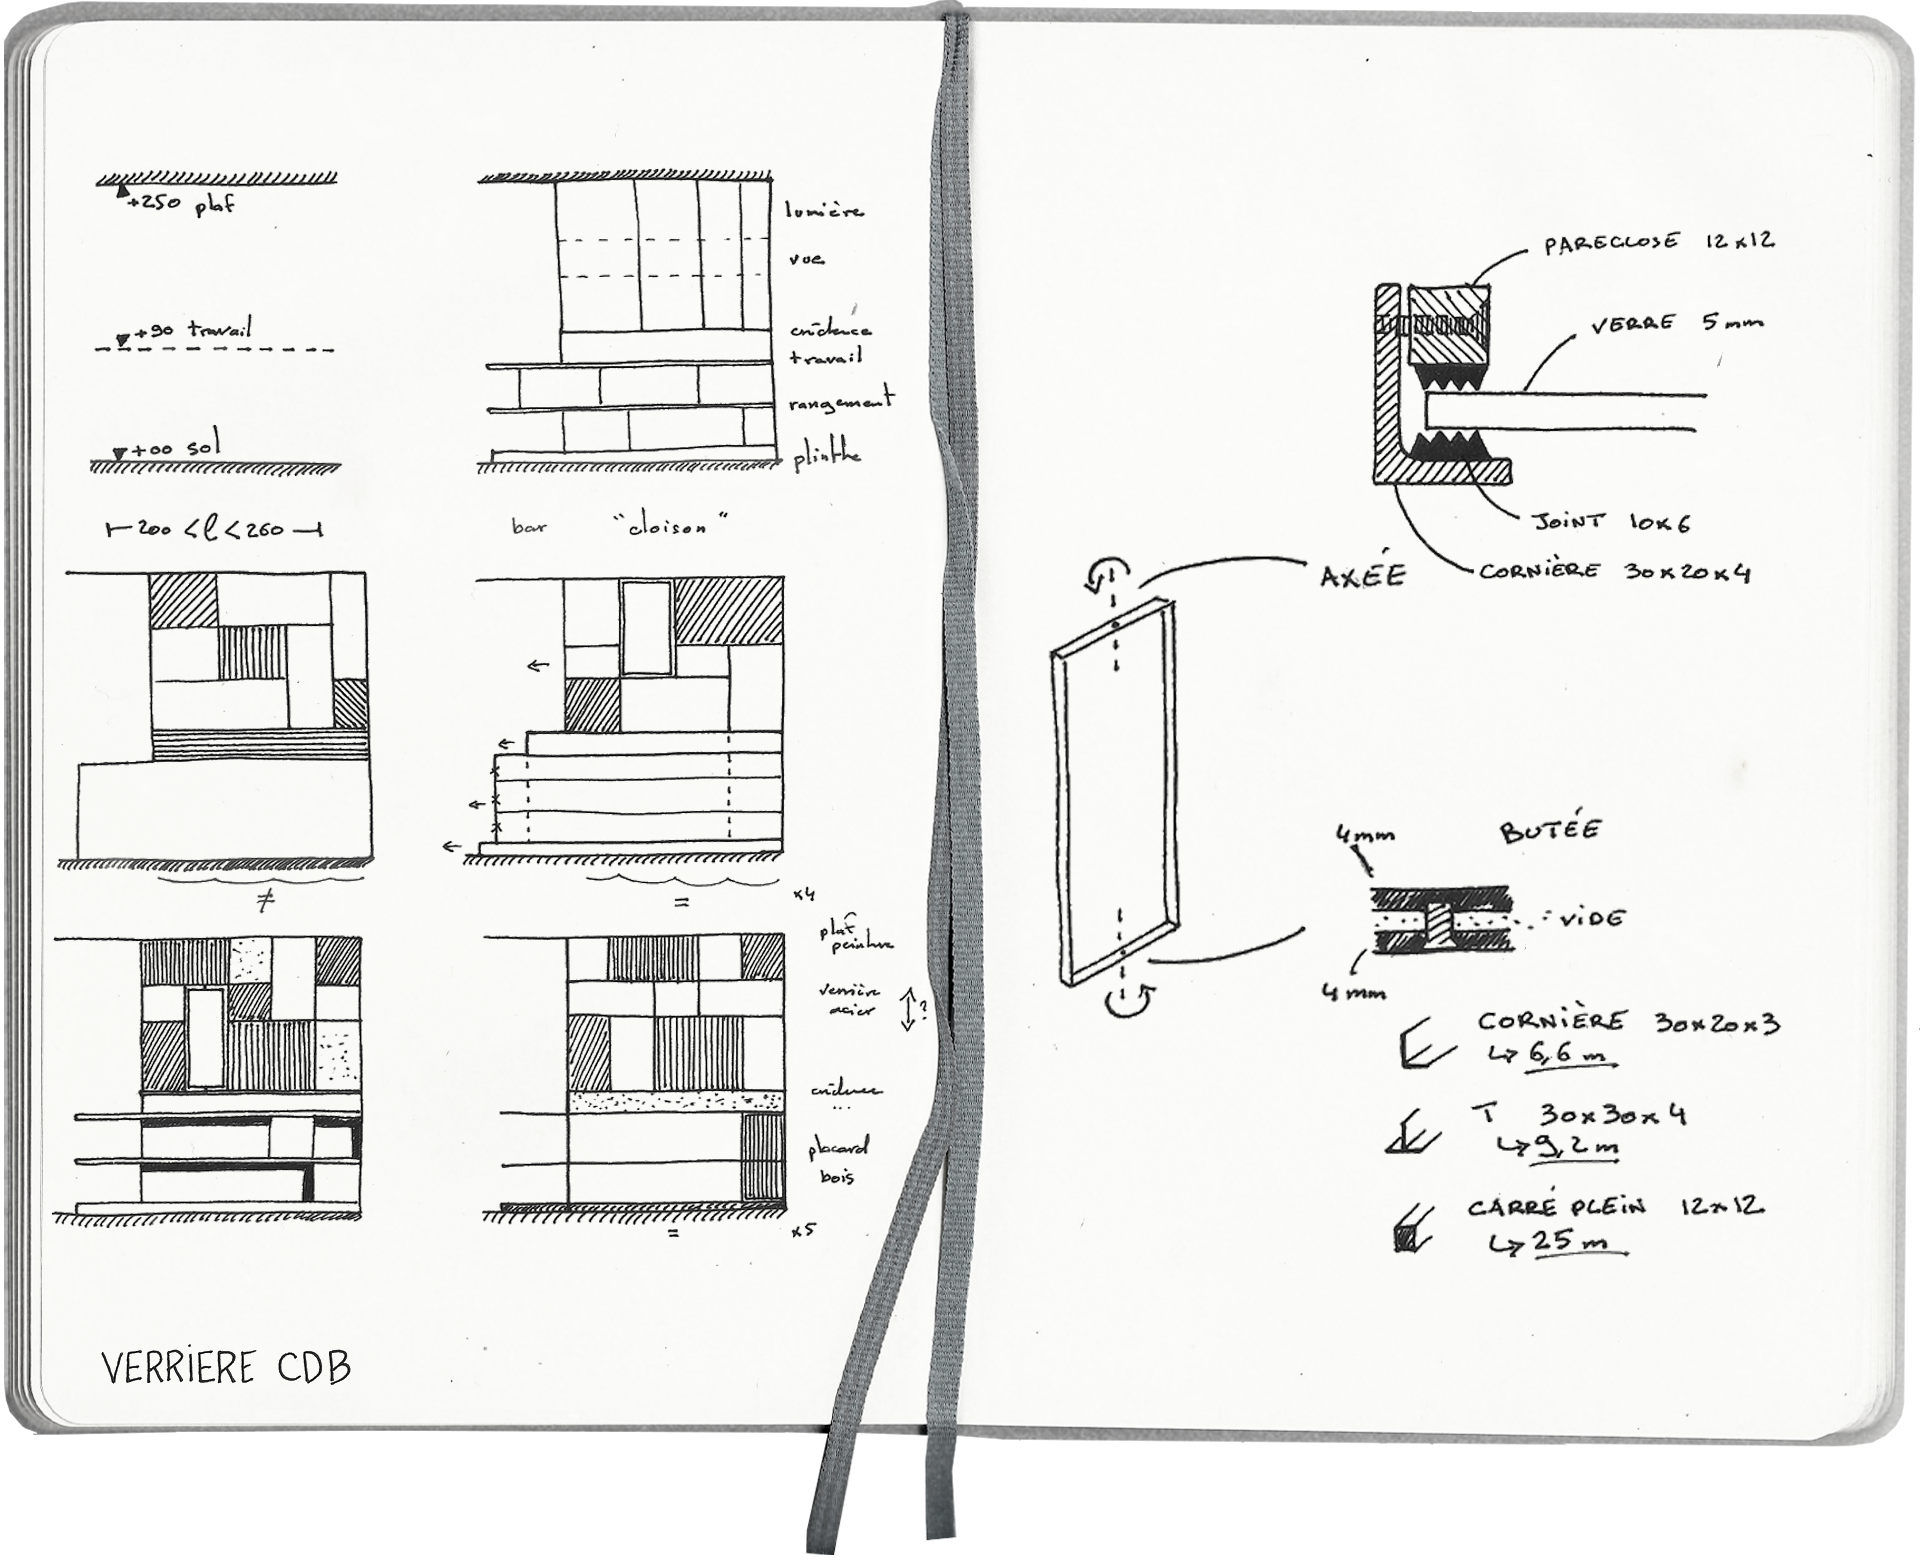 +250 plaf
+90 travail
+00 sol
⊢200 < l < 260⊣
lumière
vue
crédence
travail
rangement
plinthe
bar "cloison"
≠
= x4
plaf
peinture
verrière
acier
?
crédence
...
placard
bois
= x5
VERRIERE CDB
PARECLOSE 12x12
VERRE 5mm
JOINT 10x6
CORNIÈRE 30x20x4
AXÉE
BUTÉE
4mm
VIDE
4mm
CORNIÈRE 30x20x3
↳ 6,6 m
T 30x30x4
↳ 9,2 m
CARRÉ PLEIN 12x12
↳ 25 m